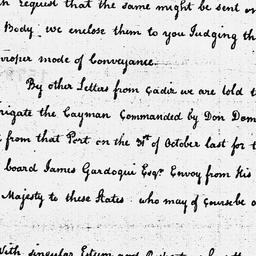 request that the same might be sent on
Body, we enclose them to you Judging th
proper mode of Conveyance.
By other Letters from Cadiz we are told t
rigate the Cayman Commanded by Don Dom
from that Port on the 31st of October last for t
board James Gardoqui Esqr. Envoy from His
Majesty to these States. who may of Course b
With singular Esteem and